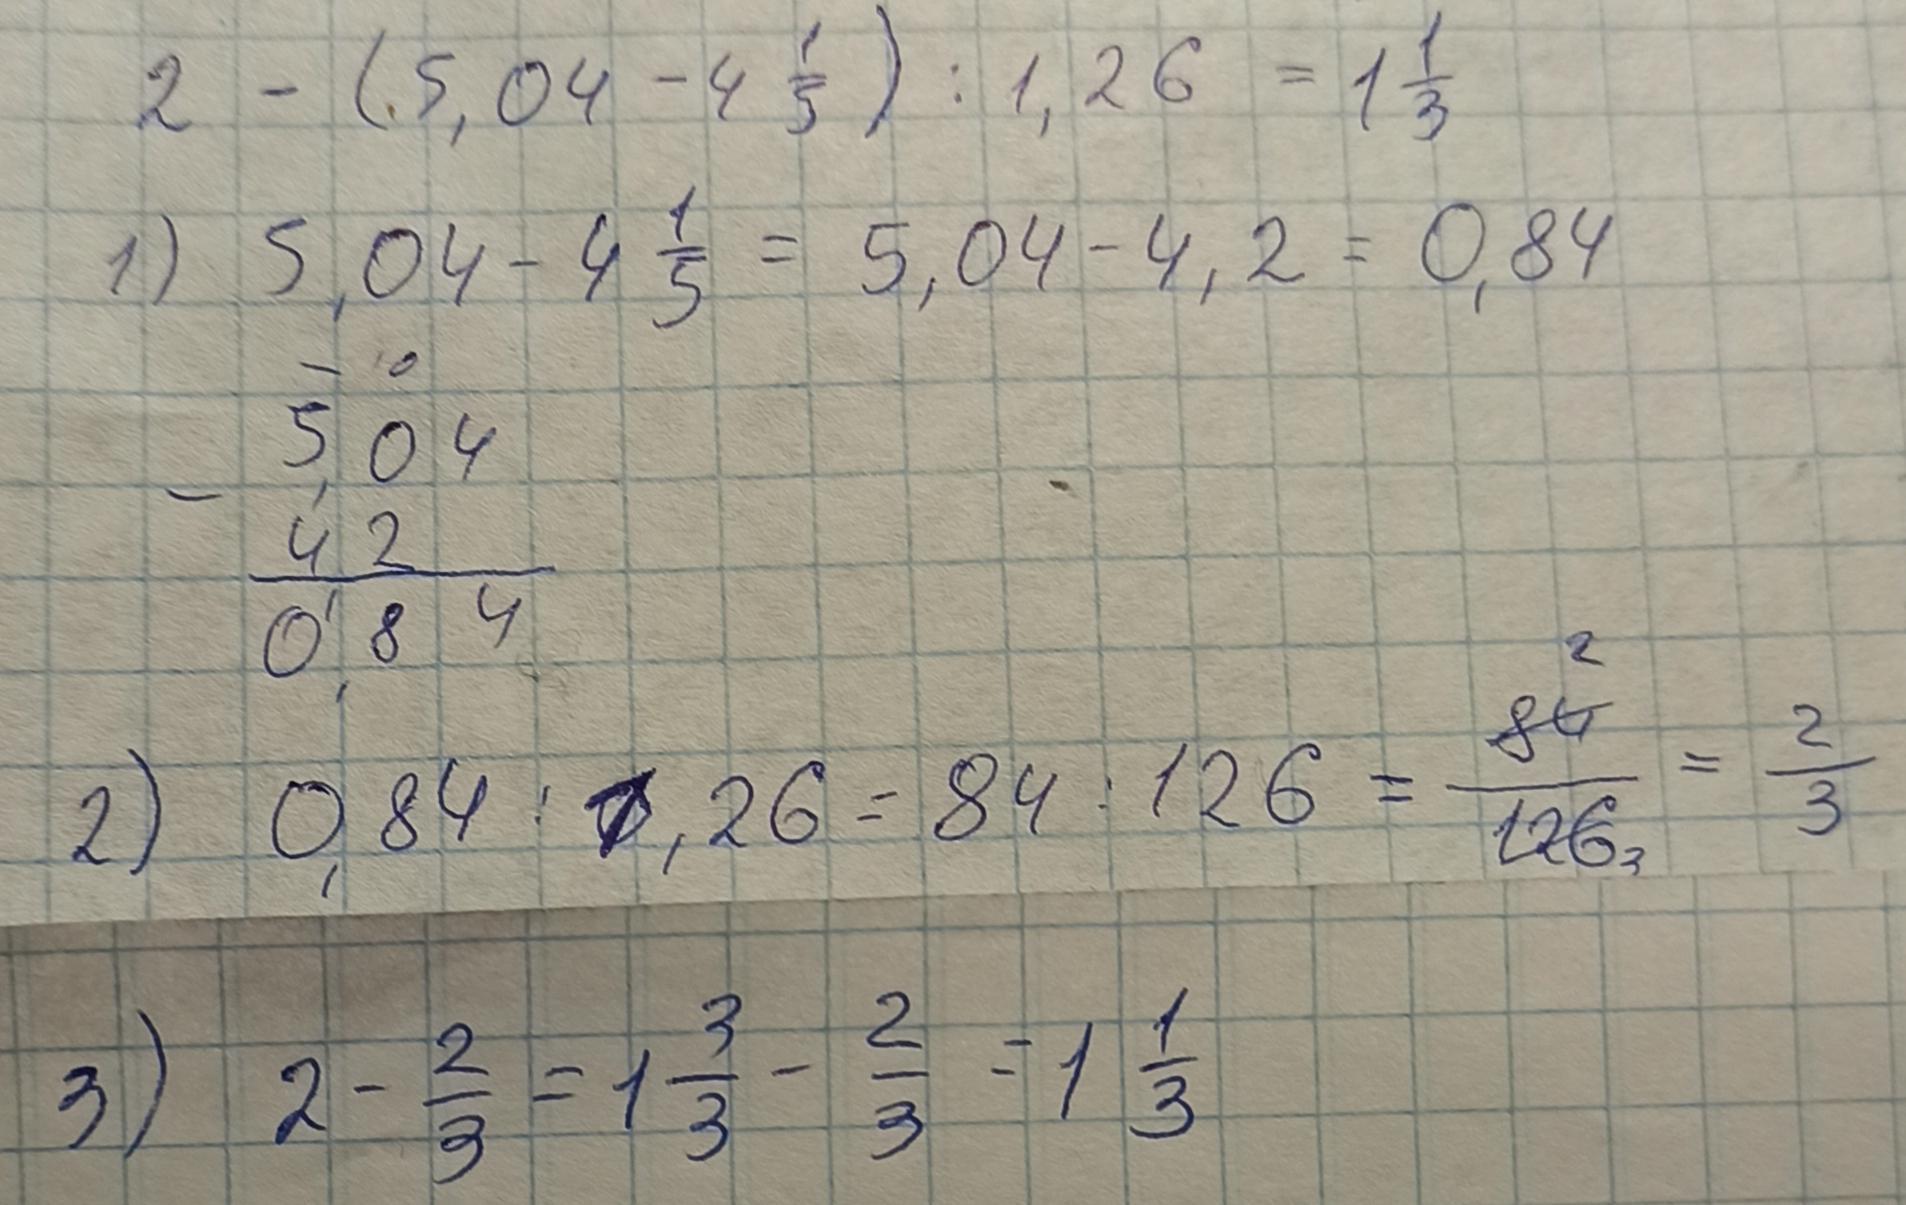 2 - (5,04 - 4 1/5) : 1,26 = 1 1/3
1) 5,04 - 4 1/5 = 5,04 - 4,2 = 0,84
- 10
5,04
-
4,2
0,84
2) 0,84 : 1,26 = 84 : 126 = 84/126 2 3 = 2/3
3) 2 - 2/3 = 1 3/3 - 2/3 = 1 1/3